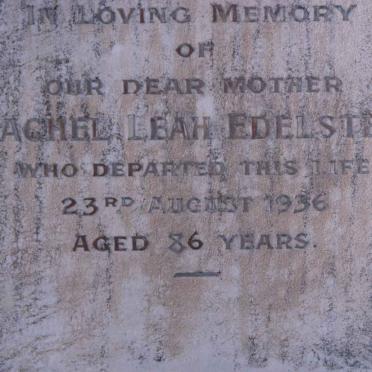 IN LOVING MEMORY
OF
OUR DEAR MOTHER
ACHEL LEAH EDELSTE
WHO DEPARTED THIS LIFE
23RD AUGUST 1936
AGED 86 YEARS.